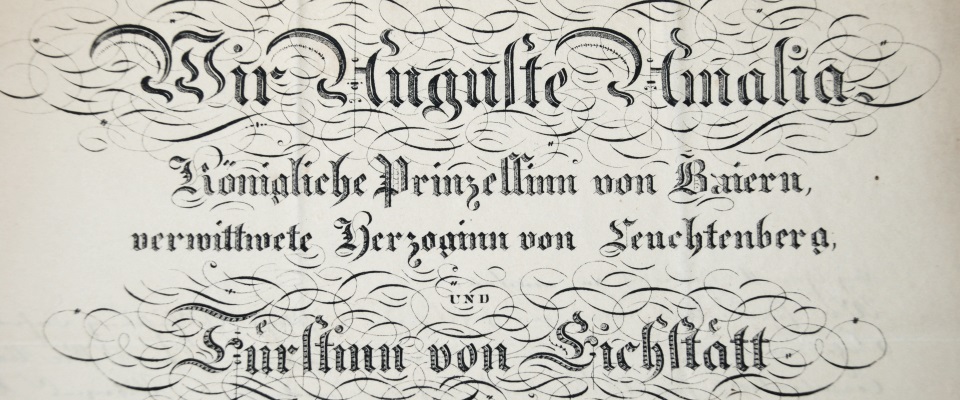 Wir Auguste Amalia.
Königliche Prinzessinn von Baiern,
verwittwete Herzoginn von Leuchtenberg,
UND
Fürstinn von Eichstätt